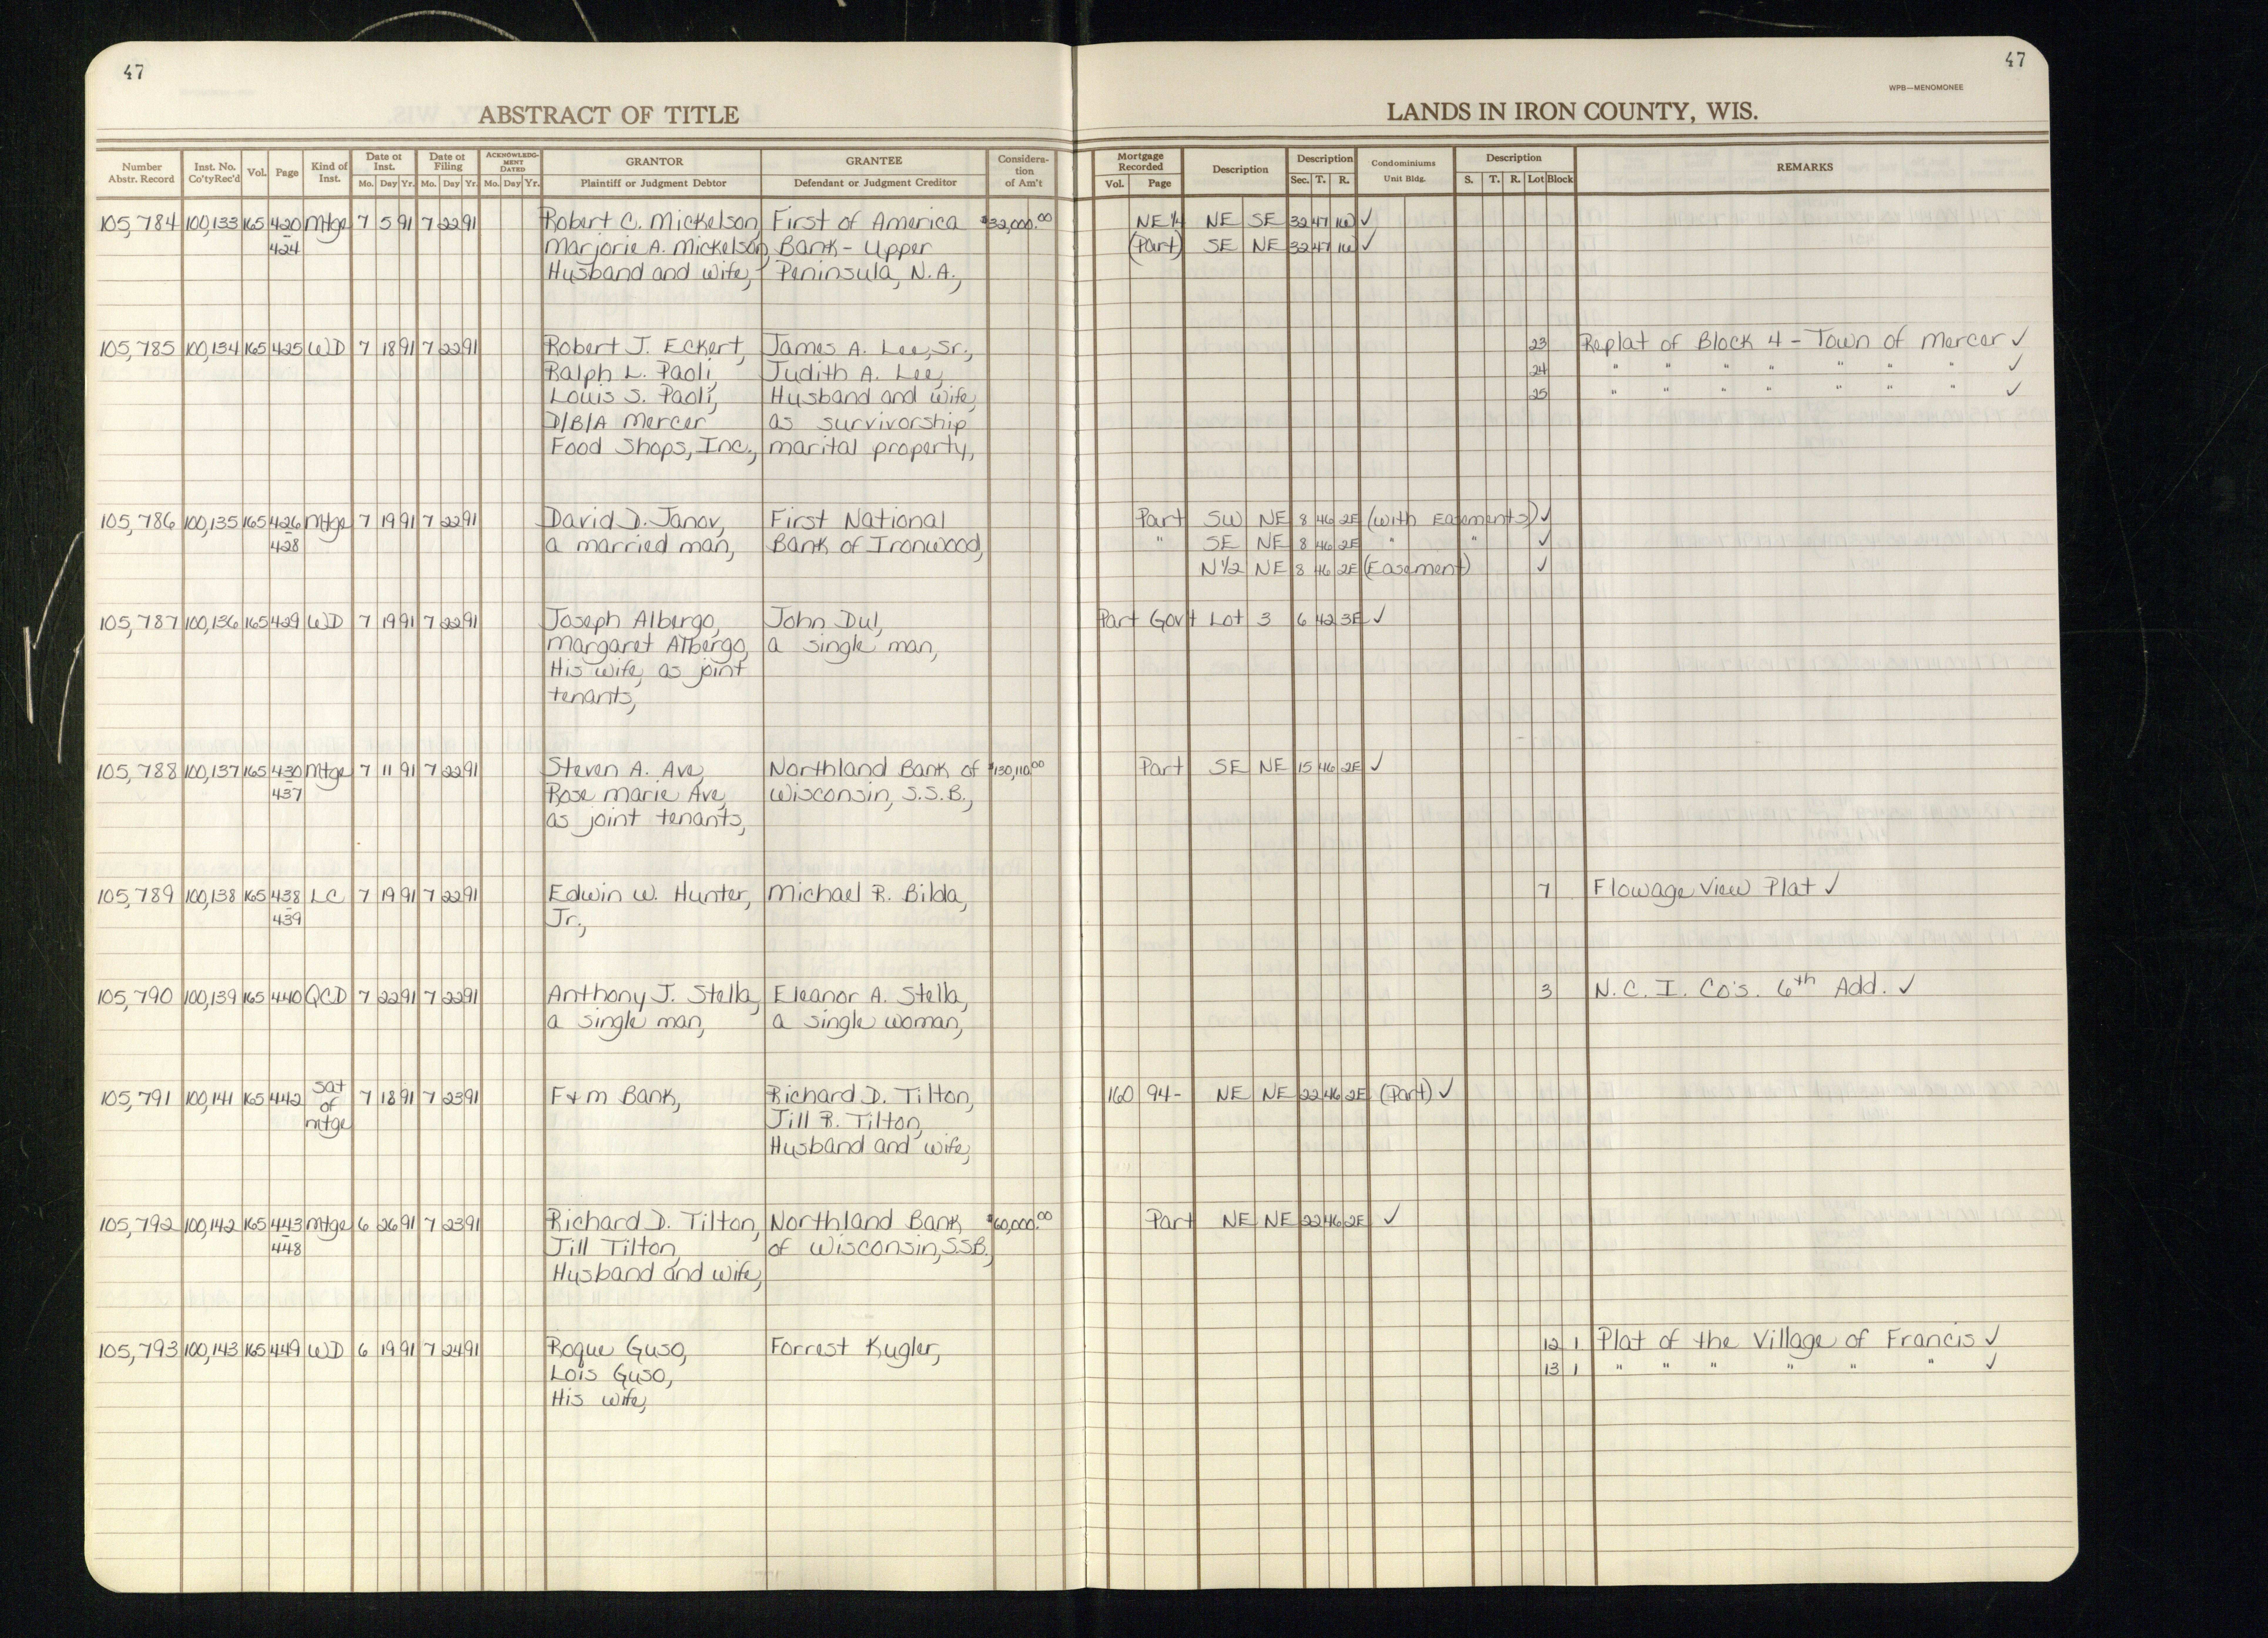 47
47
WPB—MENOMONEE
ABSTRACT OF TITLE
LANDS IN IRON COUNTY, WIS.
Number Abstr. Record | Inst. No. Co'ty Rec'd | Vol. | Page | Kind of Inst. | Date of Inst. Mo. Day Yr. | Date of Filing Mo. Day Yr. | ACKNOWLEDGMENT DATED Mo. Day Yr. | GRANTOR Plaintiff or Judgment Debtor | GRANTEE Defendant or Judgment Creditor | Consideration of Am't | Mortgage Recorded Vol. Page | Description | Description Sec. T. R. | Condominiums Unit Bldg. | Description S. T. R. Lot Block | REMARKS
105,784 100,133 165 420 Mtge 7 5 91 7 22 91 Robert C. Mickelson, First of America $32,000.00 NE 1/4 NE SE 32 47 1W ✓
– 424 Marjorie A. Mickelson, Bank - Upper (Part) SE NE 32 47 1W ✓
Husband and wife, Peninsula, N.A.,
105,785 100,134 165 425 WD 7 18 91 7 22 91 Robert J. Eckert, James A. Lee, Sr., 23 Replat of Block 4 - Town of Mercer ✓
Ralph L. Paoli, Judith A. Lee, 24 " " " " " " " ✓
Louis S. Paoli, Husband and wife, 25 " " " " " " " ✓
D/B/A Mercer as survivorship
Food Shops, Inc., marital property,
105,786 100,135 165 426 Mtge 7 19 91 7 22 91 David D. Janov, First National Part SW NE 8 46 2E (with Easements) ✓
– 428 a married man, Bank of Ironwood, " SE NE 8 46 2E " " ✓
N1/2 NE 8 46 2E (Easement) ✓
105,787 100,136 165 429 WD 7 19 91 7 22 91 Joseph Albergo, John Dul, Part Gov't Lot 3 6 42 3E ✓
Margaret Albergo, a single man,
His wife, as joint
tenants,
105,788 100,137 165 430 Mtge 7 11 91 7 22 91 Steven A. Ave, Northland Bank of $130,110.00 Part SE NE 15 46 2E ✓
– 437 Rose marie Ave, Wisconsin, S.S.B.,
as joint tenants,
105,789 100,138 165 438 LC 7 19 91 7 22 91 Edwin W. Hunter, Michael R. Bilda, 7 Flowage View Plat ✓
– 439 Jr.,
105,790 100,139 165 440 QCD 7 22 91 7 22 91 Anthony J. Stella, Eleanor A. Stella, 3 N. C. I. Co's. 6th Add. ✓
a single man, a single woman,
105,791 100,141 165 442 Sat of mtge 7 18 91 7 23 91 F+M Bank, Richard D. Tilton, 160 94- NE NE 22 46 2E (Part) ✓
Jill R. Tilton,
Husband and wife,
105,792 100,142 165 443 Mtge 6 26 91 7 23 91 Richard D. Tilton, Northland Bank $60,000.00 Part NE NE 22 46 2E ✓
– 448 Jill Tilton, of Wisconsin, S.S.B.,
Husband and wife,
105,793 100,143 165 449 WD 6 19 91 7 24 91 Roque Guso, Forrest Kugler, 12 1 Plat of the Village of Francis ✓
Lois Guso, 13 1 " " " " " " ✓
His wife,